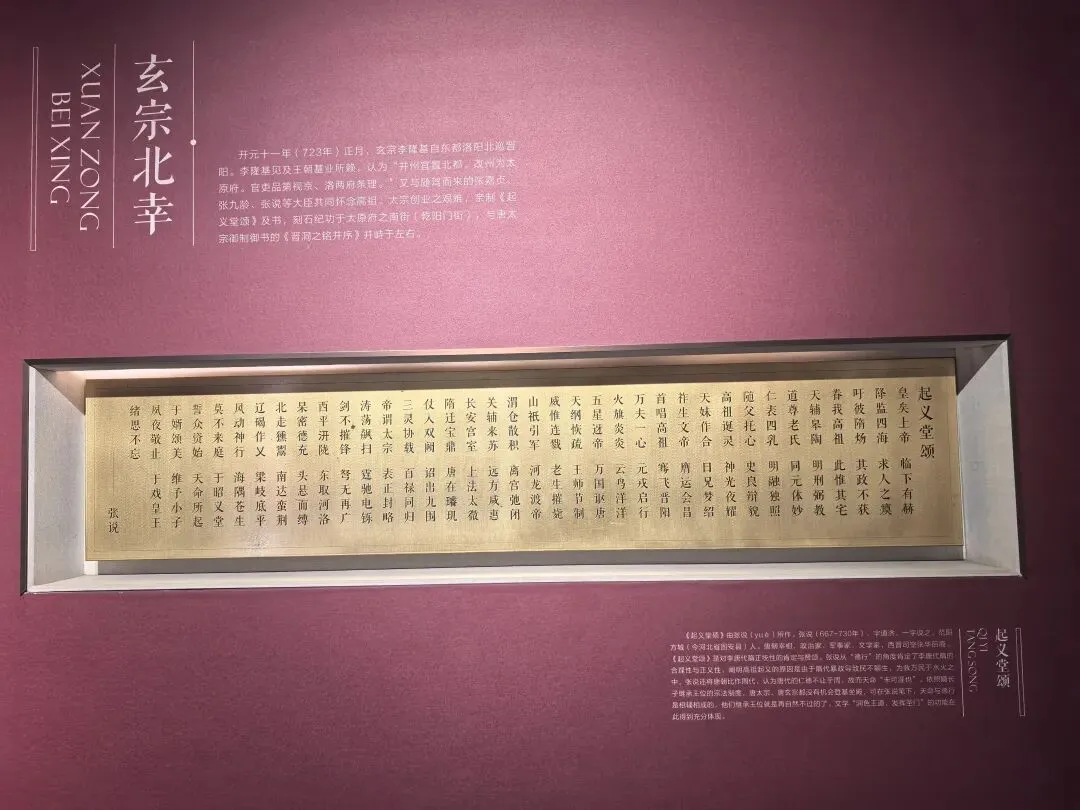 玄宗北幸
XUAN ZONG
BEI XING
开元十一年（723年）正月，玄宗李隆基自东都洛阳北巡晋
阳。李隆基见及王朝基业所赖，认为“并州宜置北都，改州为太
原府。官吏品第视京、洛两府条理。”又与随驾而来的张嘉贞、
张九龄、张说等大臣共同怀念高祖、太宗创业之艰难，亲制《起
义堂颂》及书，刻石纪功于太原府之南街（乾阳门街），与唐太
宗御制御书的《晋祠之铭并序》并峙于左右。
起义堂颂
皇矣上帝 临下有赫
降监四海 求人之瘼
吁彼隋炀 其政不获
眷我高祖 此惟其宅
天辅皋陶 明刑弼教
道尊老氏 同元体妙
仁表四乳 明融独照
随父托心 史良辩貌
高祖诞灵 神光夜耀
天妹作合 日兄梦绍
祚生文帝 膺运会昌
首唱高祖 骞飞晋阳
万夫一心 元戎启行
火旗炎炎 云鸟洋洋
五星迓帝 万国讴唐
天纲恢疏 王师节制
威惟连戢 老生摧毙
山祇引军 河龙渡帝
渭仓散积 离宫弛闭
关辅来苏 远方咸惠
长安宫室 上法太微
隋迁宝鼎 唐在璿玑
仗入双阙 诏出九围
三灵协载 百禄同归
帝谓太宗 表正封略
涛荡飙扫 霆驰电铄
剑不摧锋 弩无再广
西平汧陇 东取河洛
杲密德充 头悬面缚
北走獯鬻 南达蛮荆
辽碣作乂 海隅苍生
风动神行 梁岐底平
莫不来庭 于昭义堂
誓众资始 天命所起
于婿颂美 维予小子
夙夜敬止 于戏皇王
绪思不忘
张说
起义堂颂
QI YI
TANG SONG
《起义堂颂》由张说（yuè）所作，张说（667-730年），字道济，一字说之，范阳
方城（今河北省固安县）人。唐朝宰相，政治家、军事家、文学家，西晋司空张华后裔。
《起义堂颂》是对李唐代隋正统性的肯定与赞颂，张说从“德行”的角度肯定了李唐代隋的
合理性与正义性，阐明高祖起义的原因是由于隋代暴政导致民不聊生，为救万民于水火之
中。张说还将唐朝比作周代，认为唐代的仁德不让于周，故而天命“未可涯也”。依照嫡长
子继承王位的宗法制度，唐太宗、唐玄宗都没有机会登基坐殿，可在张说笔下，天命与德行
是相辅相成的，他们继承王位就是再自然不过的了，文学“润色王道，发挥圣门”的功能在
此得到充分体现。